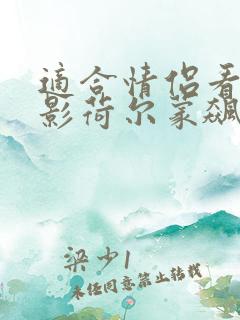 適合情侶看
影荷尔蒙飙
梁少1
未经同意禁止转载